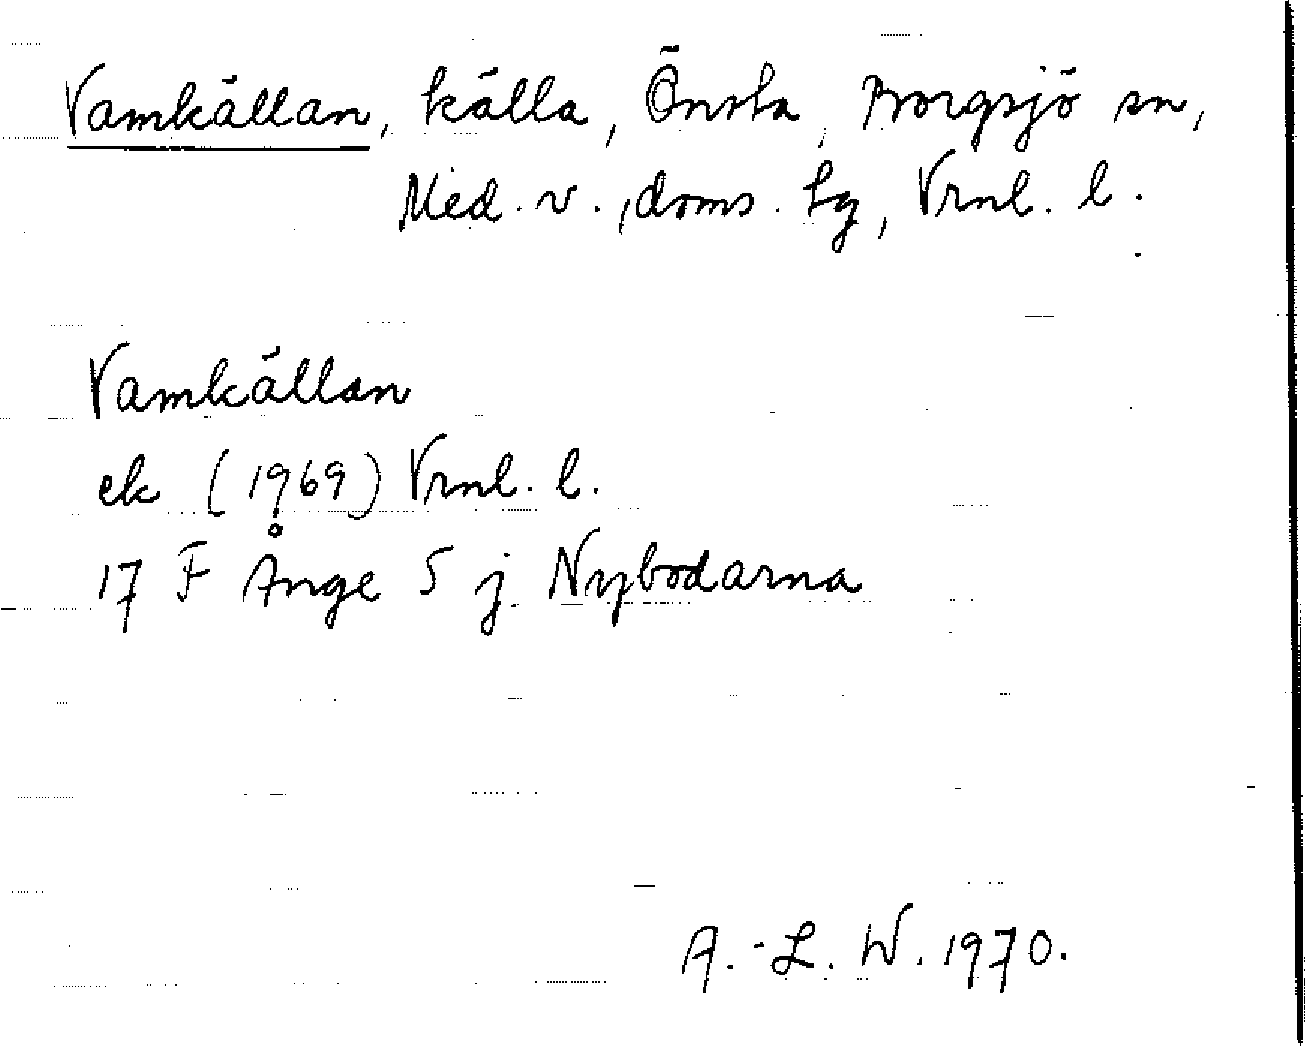 Vamkällan, källa, Önsta, Borgsjö sn,
Med. v., doms. hg, Vrnl. l.
Vamkällan
ek (1969) Vrnl. l.
17 F Ånge 5 j. Nybodarna
A.-L. W. 1970.